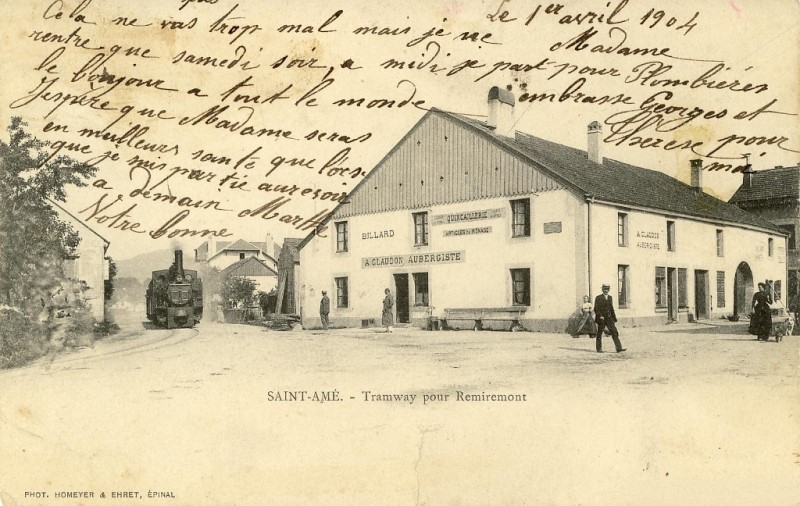 pas
Le 1er avril 1904
Cela ne vas trop mal mais je ne
Madame
rentre que samedi soir, a midi je part pour Plombiéres
le bonjour a tout le monde embrasse Georges et
J'espère que Madame seras
Therese pour
en meilleurs sante que l'ors
moi
que je suis partie auresoir
a demain Marthe
Votre bonne
QUINCAILLERIE
BILLARD
ARTICLES DE MÉNAGE
A. CLAUDON AUBERGISTE
A. CLAUDON
AUBERGISTE
SAINT-AMÉ. - Tramway pour Remiremont
PHOT. HOMEYER & EHRET, ÉPINAL